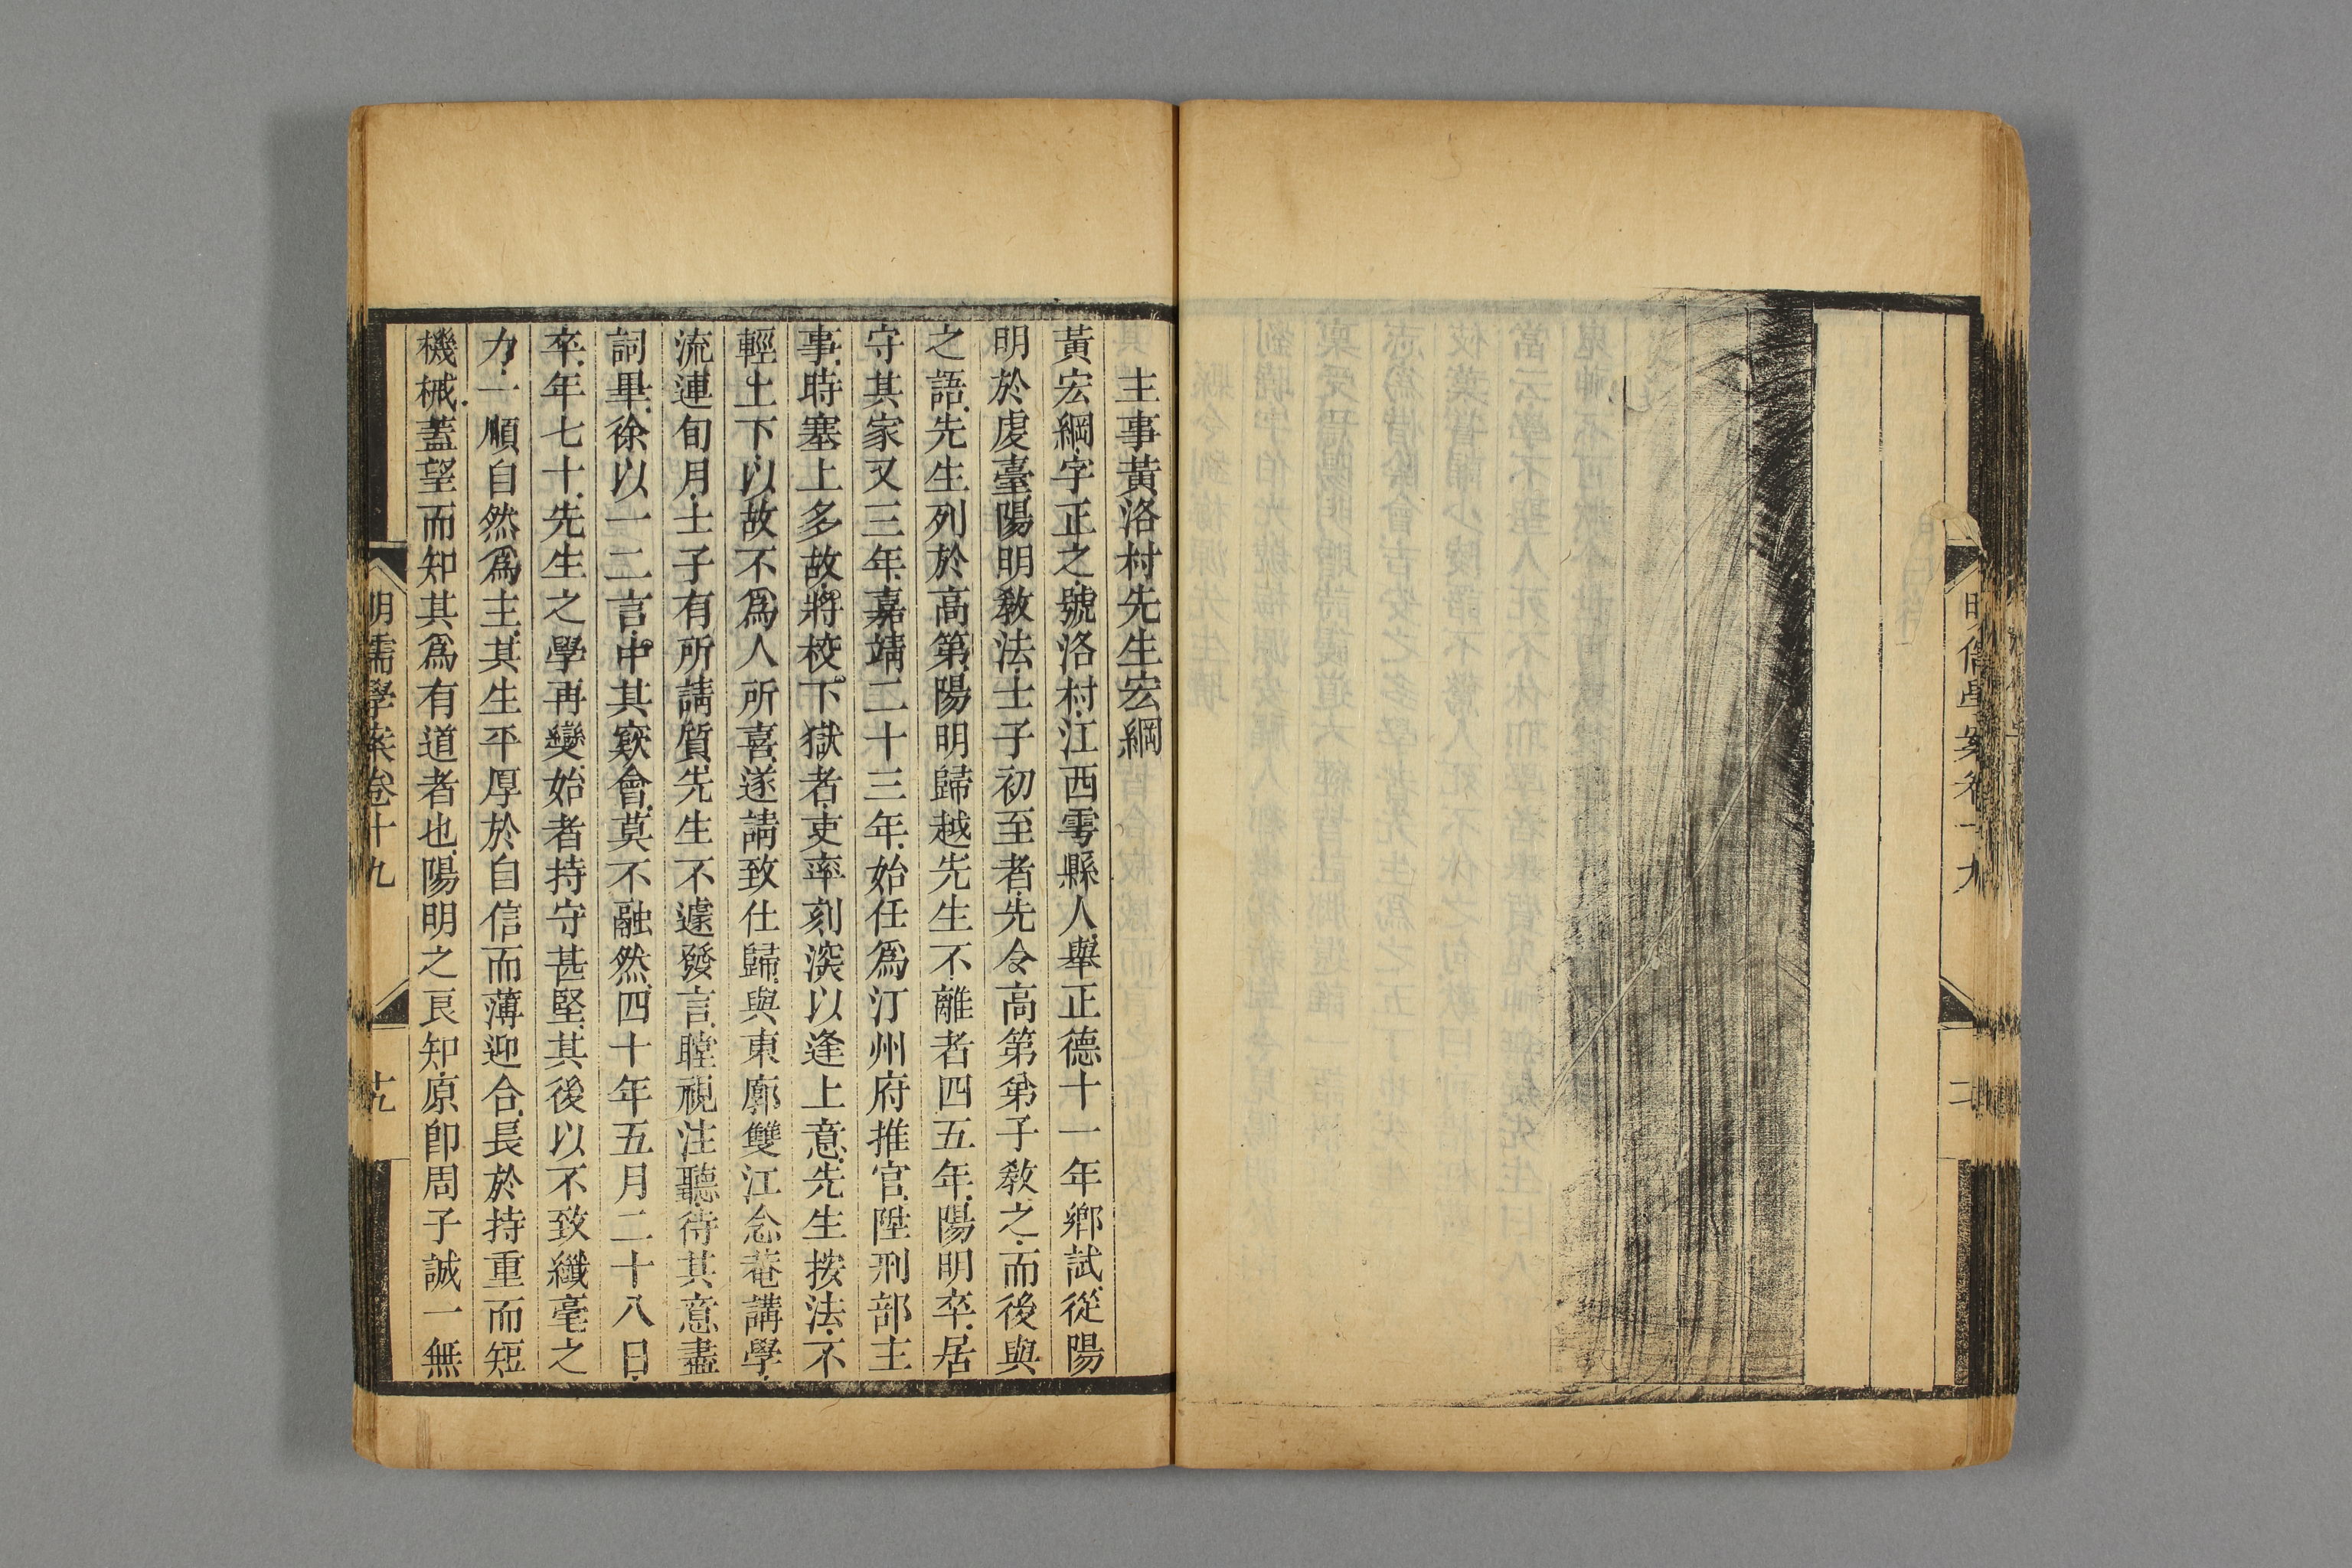 明儒學案卷十九
二
主事黃洛村先生宏綱
黃宏綱字正之號洛村江西雩縣人舉正德十一年鄉試從陽
明於虔臺陽明敎法士子初至者先令高第弟子敎之而後與
之語先生列於高第陽明歸越先生不離者四五年陽明卒居
守其家又三年嘉靖二十三年始任爲汀州府推官陞刑部主
事時塞上多故將校下獄者吏率刻深以逢上意先生按法不
輕上下以故不爲人所喜遂請致仕歸與東廓雙江念菴講學
流連旬月士子有所請質先生不遽發言瞠視注聽待其意盡
詞畢徐以一二言中其竅會莫不融然四十年五月二十八日
卒年七十先生之學再變始者持守甚堅其後以不致纖毫之
力一順自然爲主其生平厚於自信而薄迎合長於持重而短
機械蓋望而知其爲有道者也陽明之良知原卽周子誠一無
明儒學案卷十九